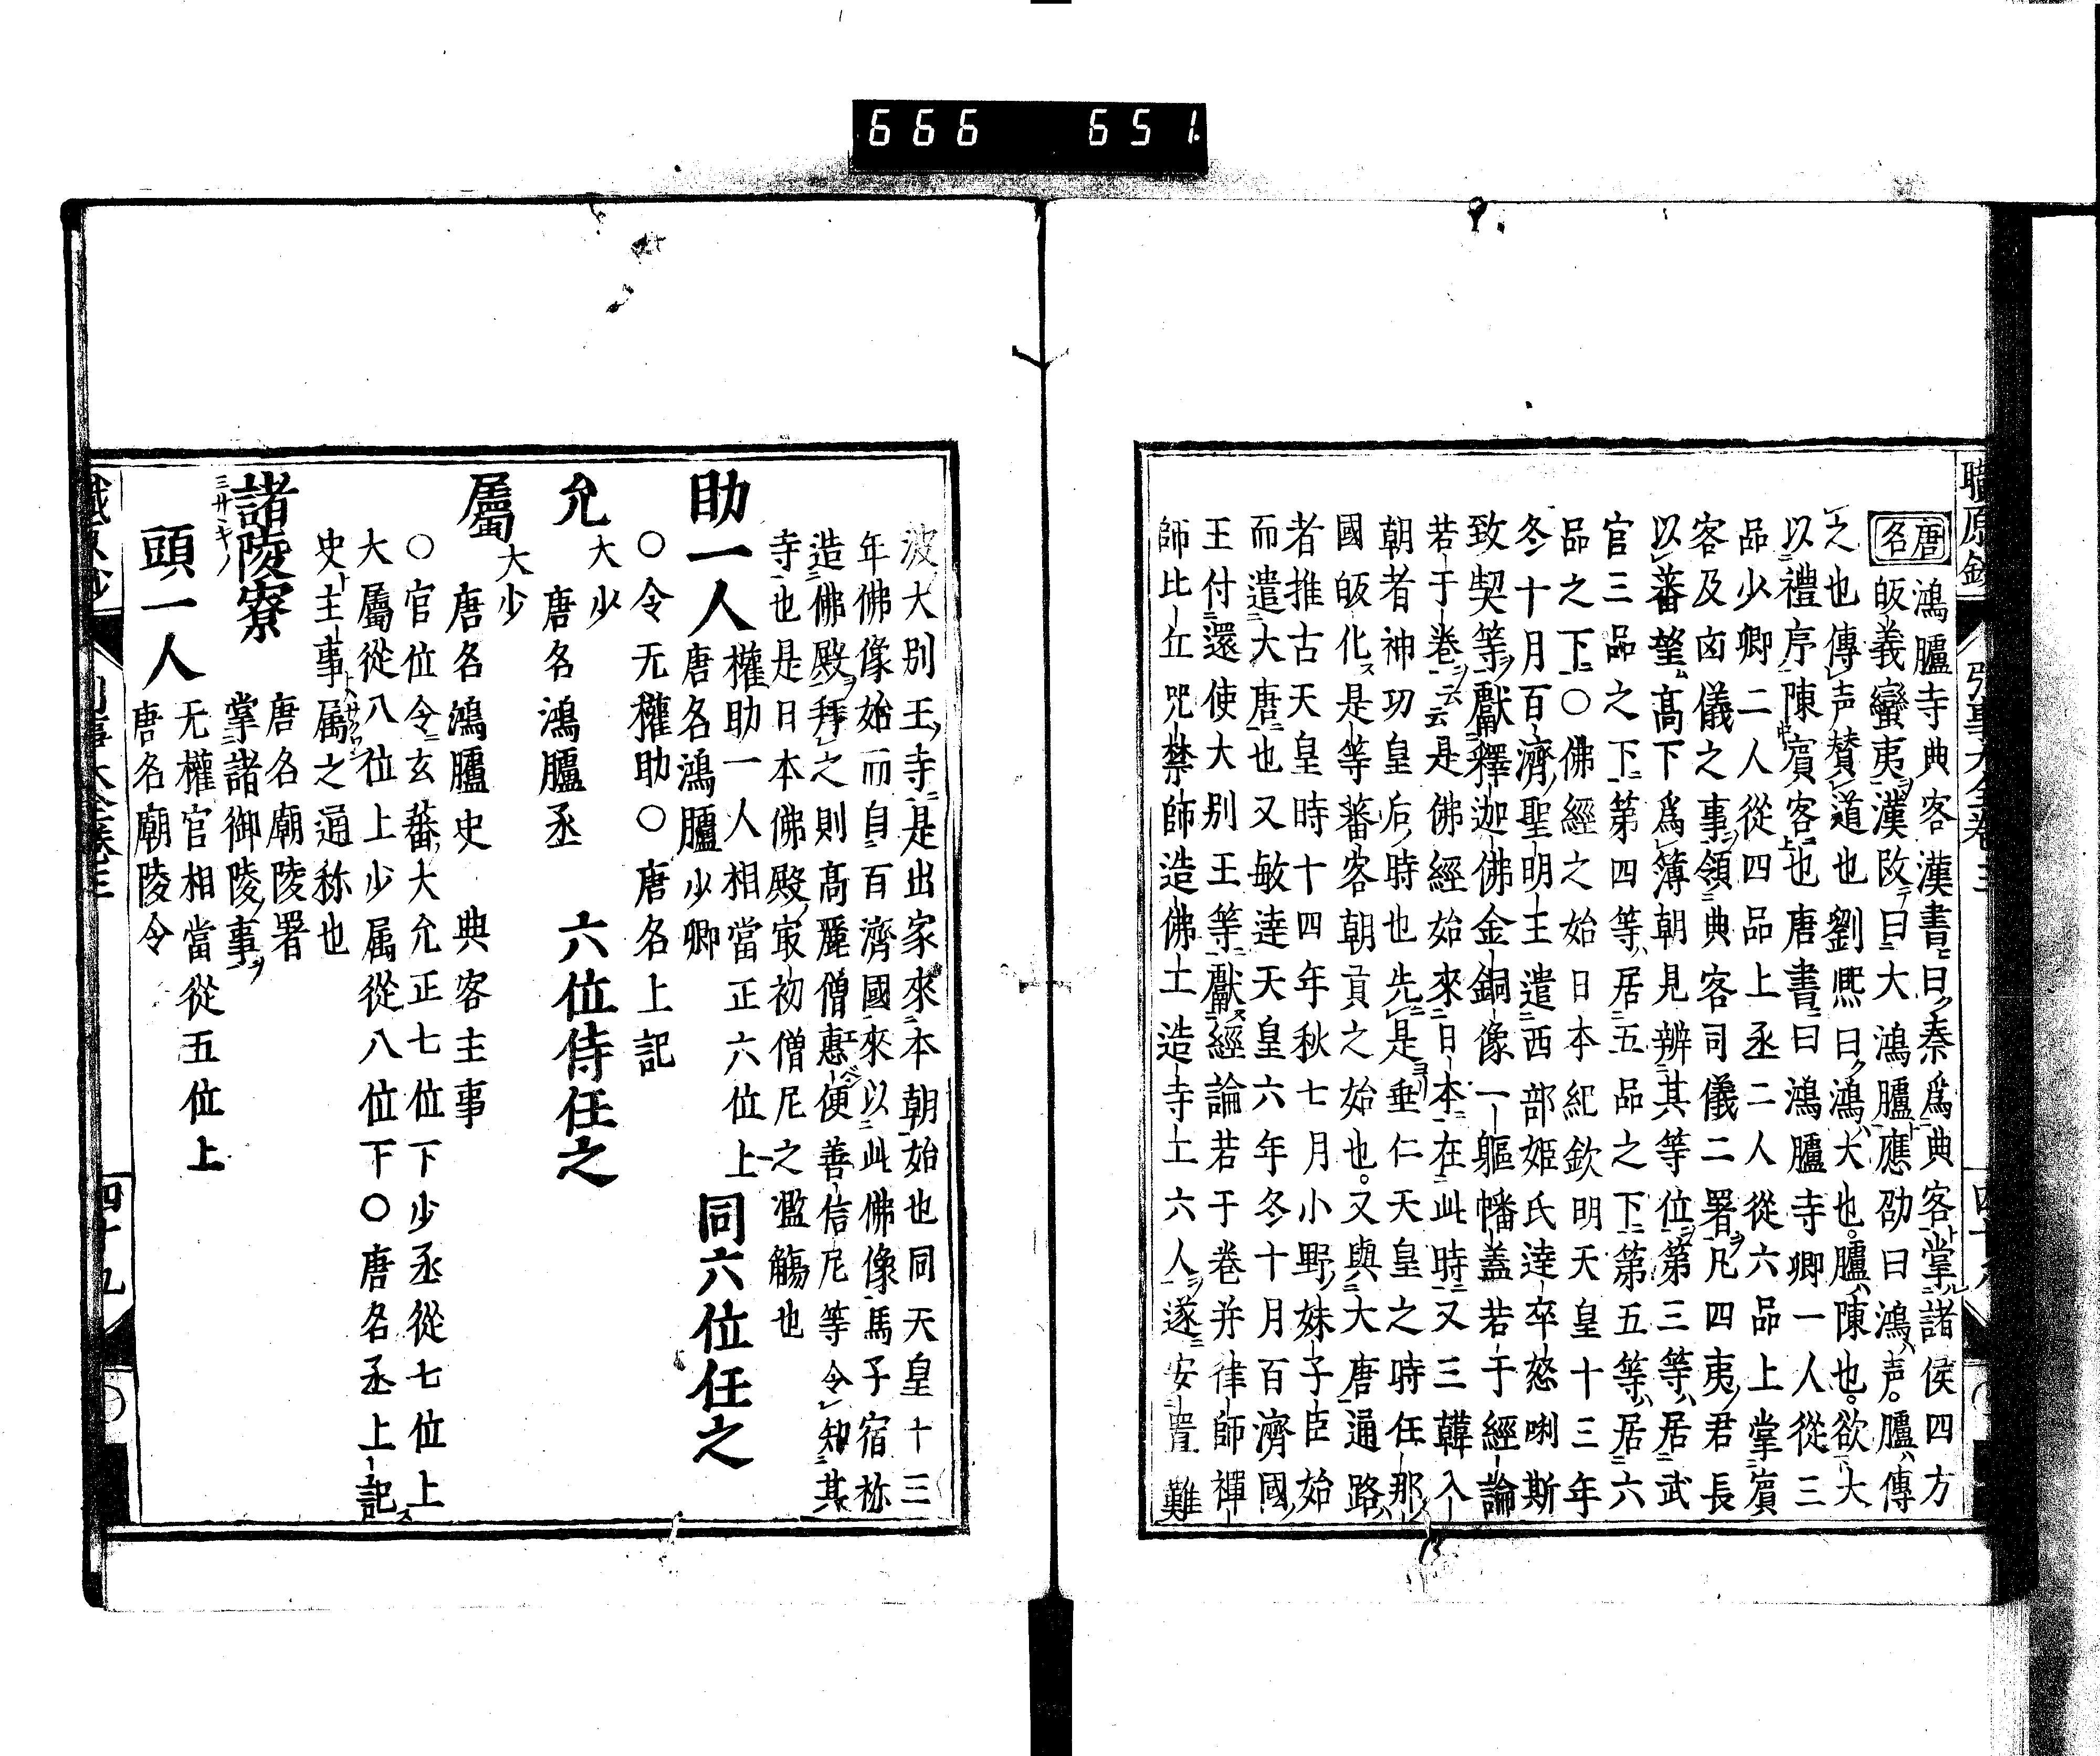 666 651
職原鈔
引事大全卷三
唐名 鴻臚寺典客漢書曰秦爲典客掌諸侯四方
皈義蠻夷漢改曰大鴻臚應劭曰鴻声臚傳
之也傳声賛道也劉熈曰鴻大也臚陳也欲大
以禮序陳賓客也唐書曰鴻臚寺卿一人從三
品少卿二人從四品上丞二人從六品上掌賓
客及凶儀之事領典客司儀二署凡四夷君長
以蕃望高下爲簿朝見辨其等位第三等居武
官三品之下第四等居五品之下第五等居六
品之下〇佛經之始日本紀欽明天皇十三年
冬十月百濟聖明王遣西部姬氏達卒怒唎斯
致契等獻釋迦佛金銅像一軀幡蓋若于經論
若于卷云云是佛經始來日本在此時又三韓入
朝者神功皇后時也先是垂仁天皇之時任那
國皈化是等蕃客朝貢之始也又與大唐通路
者推古天皇時十四年秋七月小野妹子臣始
而遣大唐也又敏達天皇六年冬十月百濟國
王付還使大別王等獻經論若于卷并律師禪
師比丘咒禁師造佛土造寺土六人遂安置難
波大別王寺是出家來本朝始也同天皇十三
年佛像始而自百濟國來以此佛像馬子宿祢
造佛殿拜之則高麗僧惠便善信尼等令知其
寺也是日本佛殿冣初僧尼之濫觴也
助一人 權助一人相當正六位上 同六位任之
唐名鴻臚少卿
〇令无權助〇唐名上記
允 大少 唐名鴻臚丞 六位侍任之
屬 大少 唐名鴻臚史 典客主事
〇官位令玄蕃大允正七位下少丞從七位上
大屬從八位上少属從八位下〇唐名丞上記
史主事属之通称也
諸陵寮 唐名廟陵署
掌諸御陵事
頭一人 无權官相當從五位上
唐名廟陵令
四十九